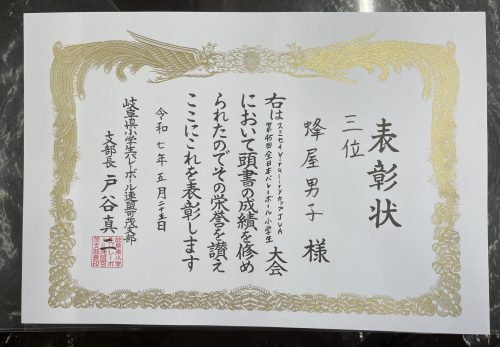 表彰状
三位
蜂屋男子 様
右は
第45回全日本バレーボール小学生
大会
において頭書の成績を修め
られたのでその栄誉を讃え
ここにこれを表彰します
令和七年五月二十五日
岐阜県小学生バレーボール連盟可茂支部
支部長 戸谷真二